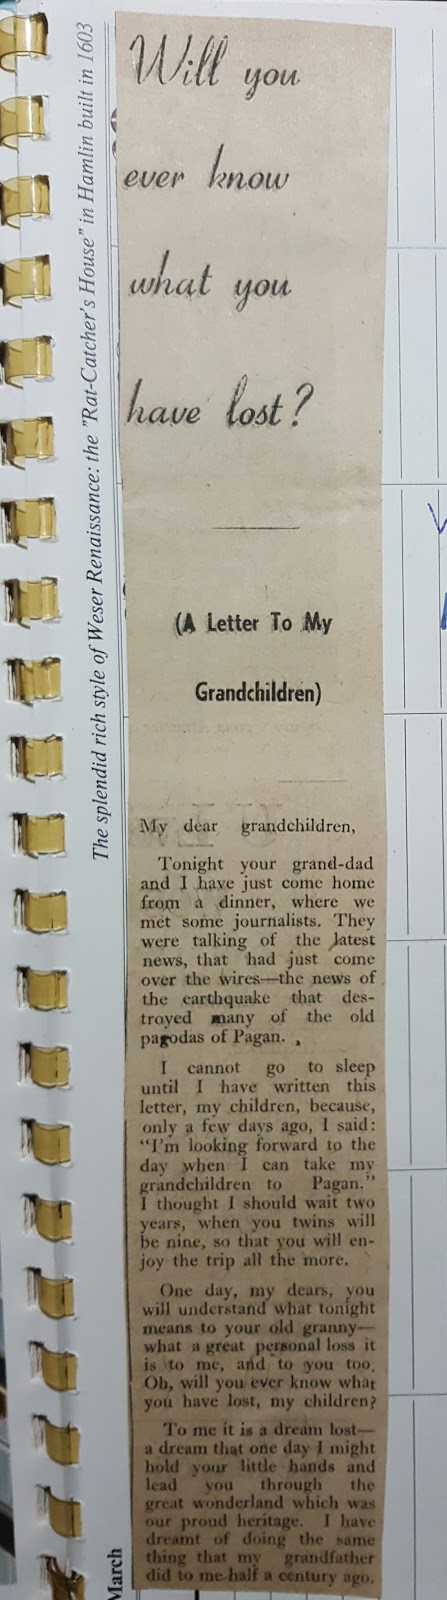 The splendid rich style of Weser Renaissance: the "Rat-Catcher's House" in Hamlin built in 1603
Will you
ever know
what you
have lost?
(A Letter To My
Grandchildren)
My dear grandchildren,
Tonight your grand-dad
and I have just come home
from a dinner, where we
met some journalists. They
were talking of the latest
news, that had just come
over the wires—the news of
the earthquake that des-
troyed many of the old
pagodas of Pagan.
I cannot go to sleep
until I have written this
letter, my children, because,
only a few days ago, I said:
"I'm looking forward to the
day when I can take my
grandchildren to Pagan."
I thought I should wait two
years, when you twins will
be nine, so that you will en-
joy the trip all the more.
One day, my dears, you
will understand what tonight
means to your old granny—
what a great personal loss it
is to me, and to you too.
Oh, will you ever know what
you have lost, my children?
To me it is a dream lost—
a dream that one day I might
hold your little hands and
lead you through the
great wonderland which was
our proud heritage. I have
dreamt of doing the same
thing that my grandfather
did to me half a century ago.
March